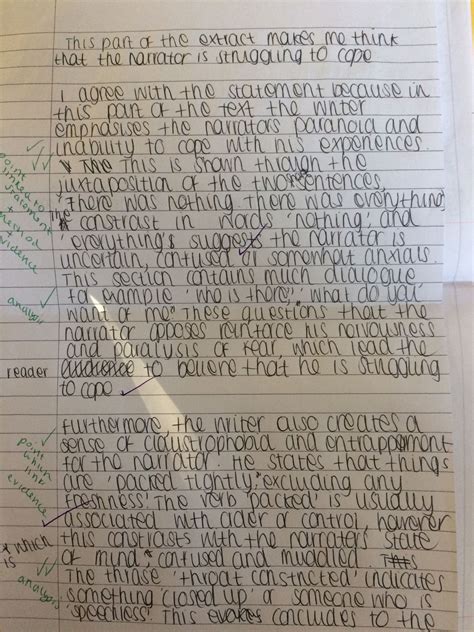 This part of the extract makes me think
that the narrator is struggling to cope
I agree with the statement because in
this part of the text the writer
emphasises the narrators paranoia and
inability to cope with his experiences.
This is shown through the
juxtaposition of the two sentences,
'There was nothing. There was everything'
The constrast in words 'nothing', and
'everything's suggests the narrator is
uncertain, confused or somewhat anxious.
This section contains much dialogue
for example 'who is there', 'what do you
want of me'. These questions that the
narrator opposes reinforce his nervousness
and paralysis of fear, which lead the
reader audience to believe that he is struggling
to cope
Furthermore, the writer also creates a
sense of claustrophobia and entrappment
for the narrator. He states that things
are 'packed tightly, excluding any
freshness'. The verb 'packed' is usually
associated with order or control, however
this constrasts with the narrators state
of mind, * which is confused and muddled.
The phrase 'throat constricted' indicates
something 'closed up' or someone who is
'speechless'. This evokes concludes to the
point
linked to
statement
+
method
evidence
analysis
point
which
link
evidence
analysis